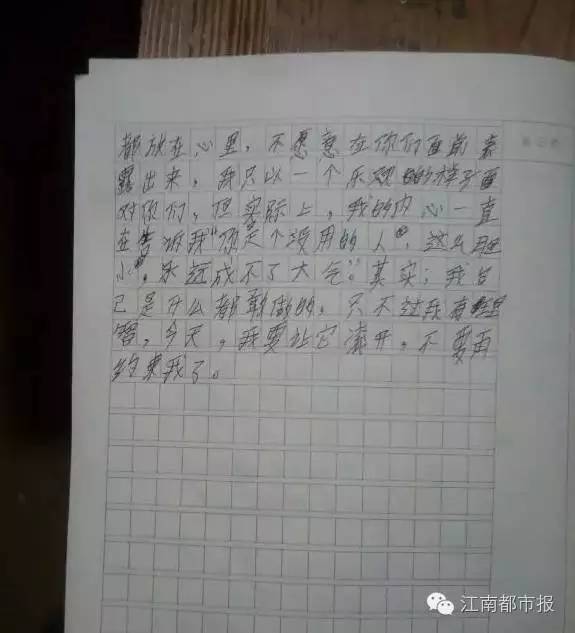 都放在心里，不愿意在你们面前表
露出来，我只以一个乐观的样子面
对你们，但实际上，我的内心一直
在告诉我“你是个没用的人”，这么胆
小，永远成不了大气”。其实，我自
己是什么都敢做的，只不过我有理
智，今天，我要让它滚开，不要再
约束我了。
江南都市报